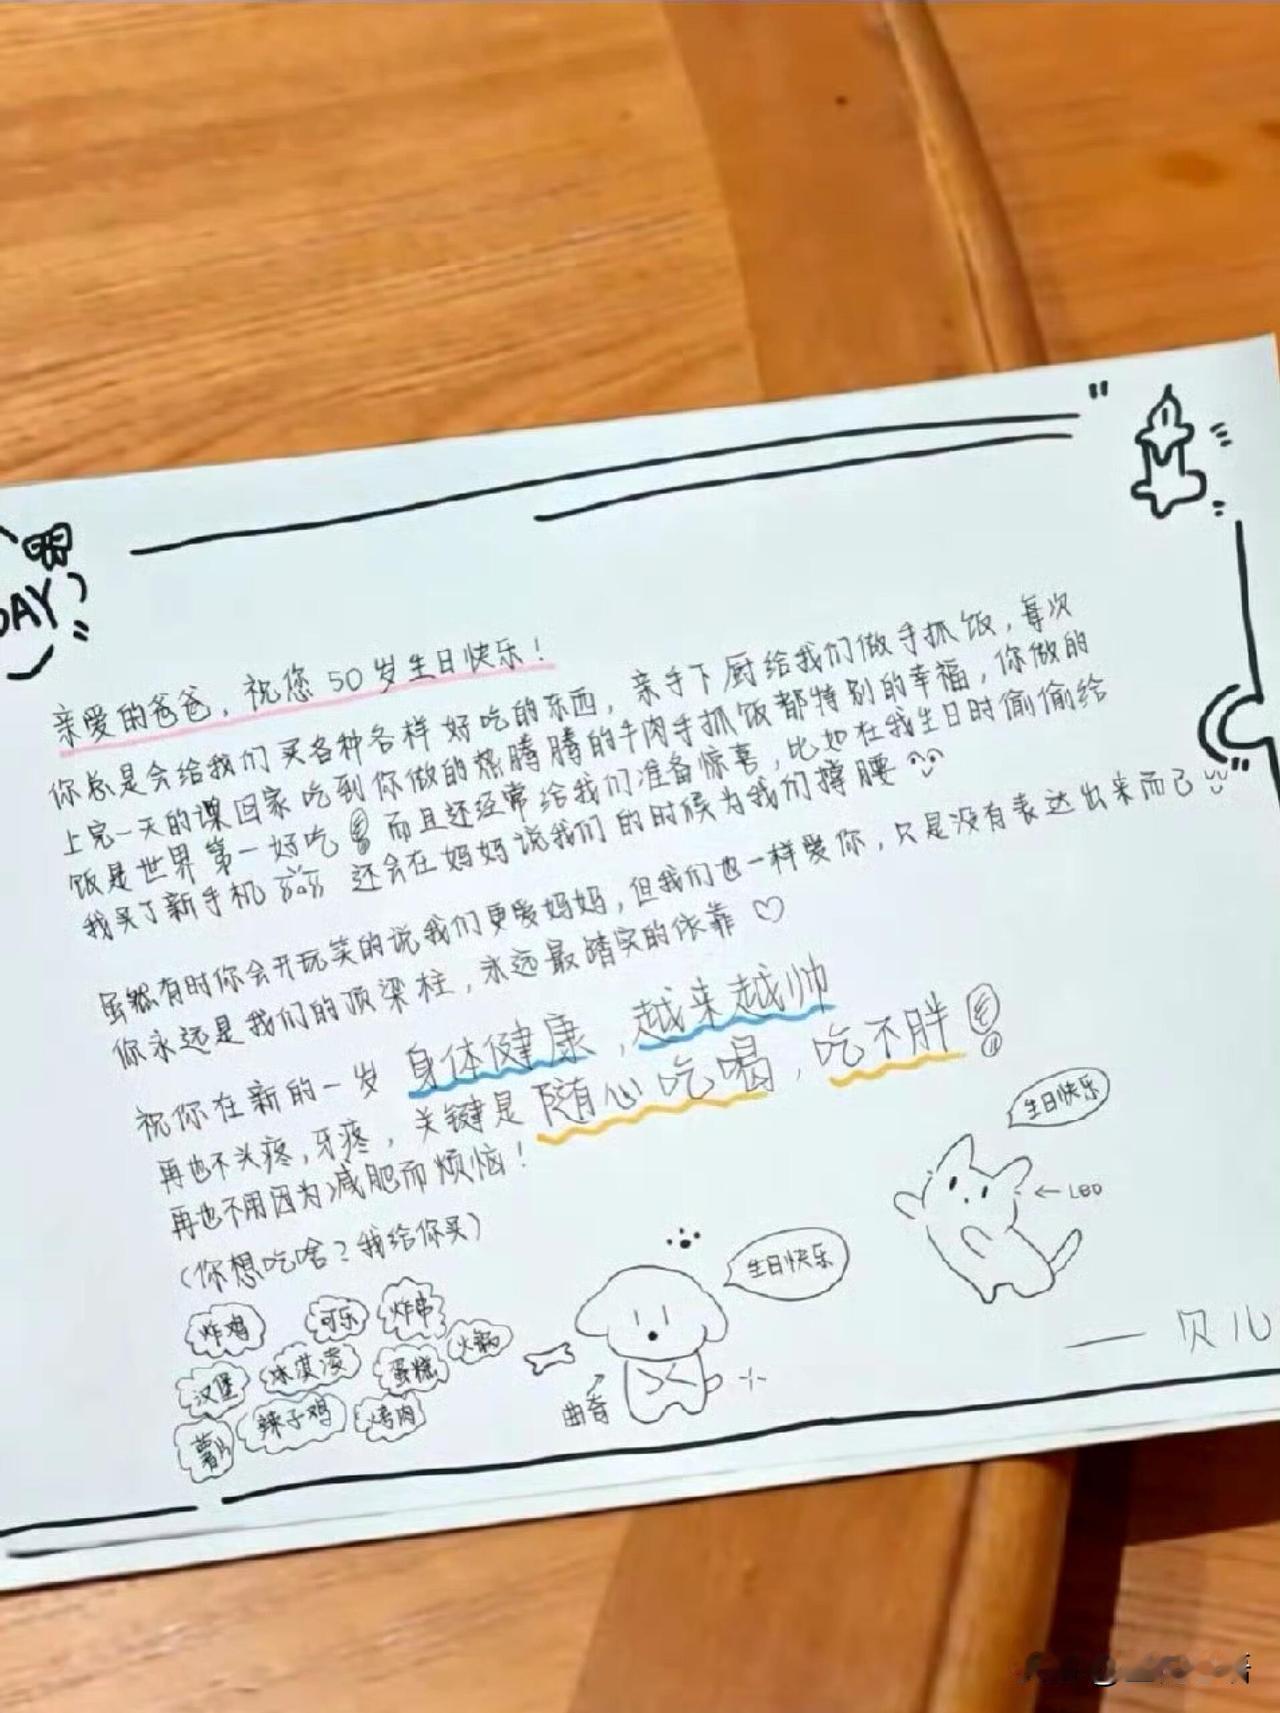 DAY
亲爱的爸爸，祝您50岁生日快乐！
你总是会给我们买各种各样好吃的东西，亲手下厨给我们做手抓饭，每次
上完一天的课回家吃到你做的热腾腾的牛肉手抓饭都特别的幸福，你做的
饭是世界第一好吃 而且还经常给我们准备惊喜，比如在我生日时偷偷给
我买了新手机 还会在妈妈说我们的时候为我们撑腰
虽然有时你会开玩笑的说我们更爱妈妈，但我们也一样爱你，只是没有表达出来而已
你永远是我们的顶梁柱，永远最踏实的依靠♡
祝你在新的一岁 身体健康，越来越帅
再也不头疼，牙疼，关键是随心吃喝，吃不胖
再也不用因为减肥而烦恼！
（你想吃啥？我给你买）
炸鸡 可乐 炸串
汉堡 冰淇凌 蛋糕 火锅
薯片 辣子鸡 烤肉
曲奇
生日快乐
生日快乐
← LEO
—— 贝儿